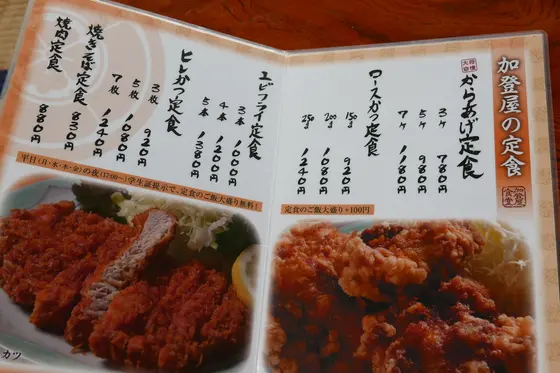 加登屋の定食
大将自慢
からあげ定食
3ヶ 780円
5ヶ 980円
7ヶ 1180円
ロースかつ定食
150g 920円
200g 1080円
250g 1240円
定食のご飯大盛り+100円
加登屋食堂
エビフライ定食
3本 1000円
4本 1200円
5本 1380円
ヒレかつ定食
3枚 920円
5枚 1080円
7枚 1240円
焼きそば定食 830円
焼肉定食 880円
平日(月・水・木・金)の夜(17:00〜)学生証提示で、定食のご飯大盛り無料!
カツ